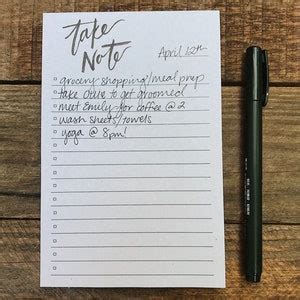 take
NOTE
April 12th
grocery shopping/meal prep
take Ollie to get groomed
meet Emily for coffee @ 2
wash sheets/towels
yoga @ 8pm!